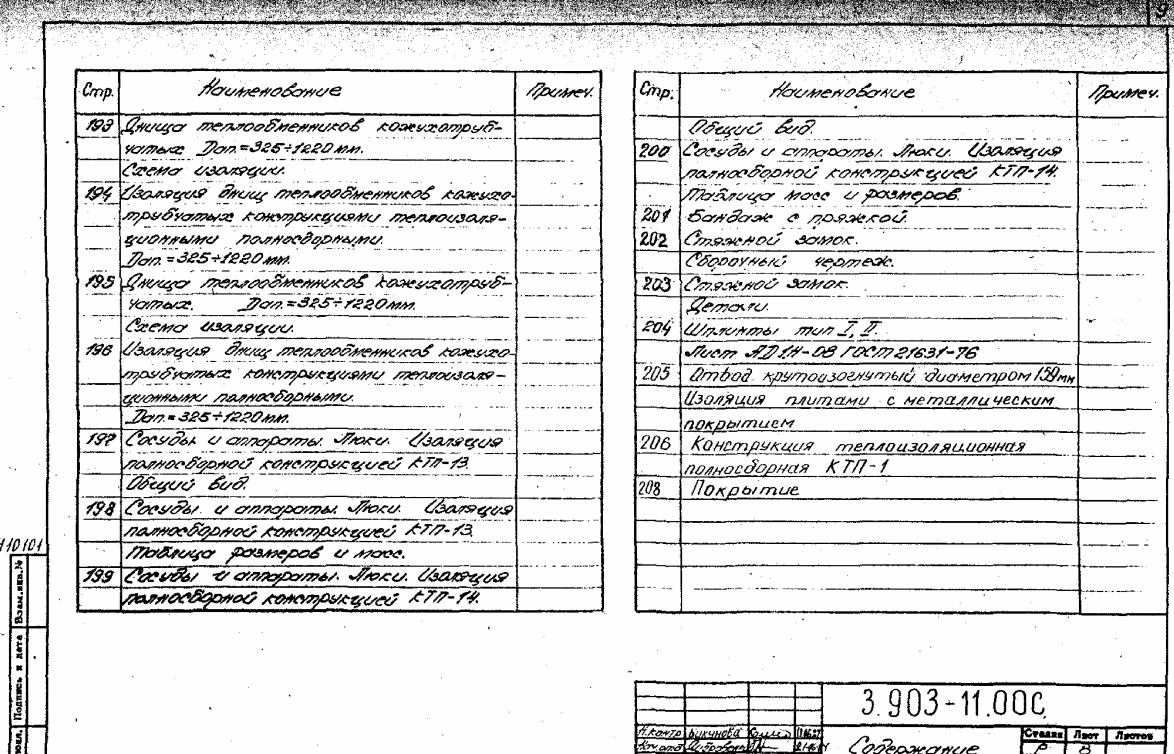 9
Стр. Наименование Примеч.
193 Днища теплообменников кожухотруб-
чатых Dап.=325÷1220мм.
Схема изоляции.
194 Изоляция днищ теплообменников кожухо-
трубчатых конструкциями теплоизоля-
ционными полносборными.
Dап.=325÷1220мм.
195 Днища теплообменников кожухотруб-
чатых. Dап.=325÷1220мм.
Схема изоляции.
196 Изоляция днищ теплообменников кожухо-
трубчатых конструкциями теплоизоля-
ционными полносборными.
Dап.=325÷1220мм.
197 Сосуды и аппараты. Люки. Изоляция
полносборной конструкцией КТП-13.
Общий вид.
198 Сосуды и аппараты. Люки. Изоляция
полносборной конструкцией КТП-13.
Таблица размеров и масс.
199 Сосуды и аппараты. Люки. Изоляция
полносборной конструкцией КТП-14.
Стр. Наименование Примеч.
Общий вид.
200 Сосуды и аппараты. Люки. Изоляция
полносборной конструкцией КТП-14.
Таблица масс и размеров.
201 Бандаж с пряжкой.
202 Стяжной замок.
Сборочный чертеж.
203 Стяжной замок.
Детали.
204 Шплинты тип I, II.
Лист АД1Н-08 ГОСТ 21631-76
205 Отвод крутоизогнутый диаметром 159мм
Изоляция плитами с металлическим
покрытием
206 Конструкция теплоизоляционная
полносборная КТП-1
208 Покрытие
110101
Взам.инв.№
Подпись и дата
3.903-11.00С.
Н.контр Букунова
Содержание
Стадия Лист Листов
Р 8